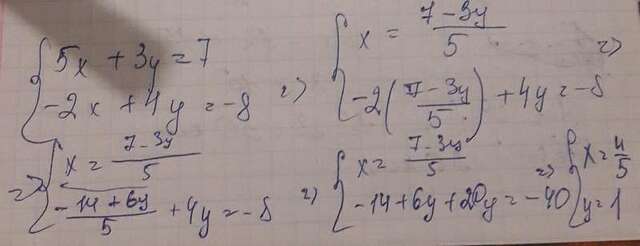 { 5x + 3y = 7
-2x + 4y = -8 => { x = (7-3y)/5
-2((7-3y)/5) + 4y = -8 =>
=> { x = (7-3y)/5
(-14+6y)/5 + 4y = -8 => { x = (7-3y)/5
-14+6y+20y = -40 => { x = 4/5
y = 1